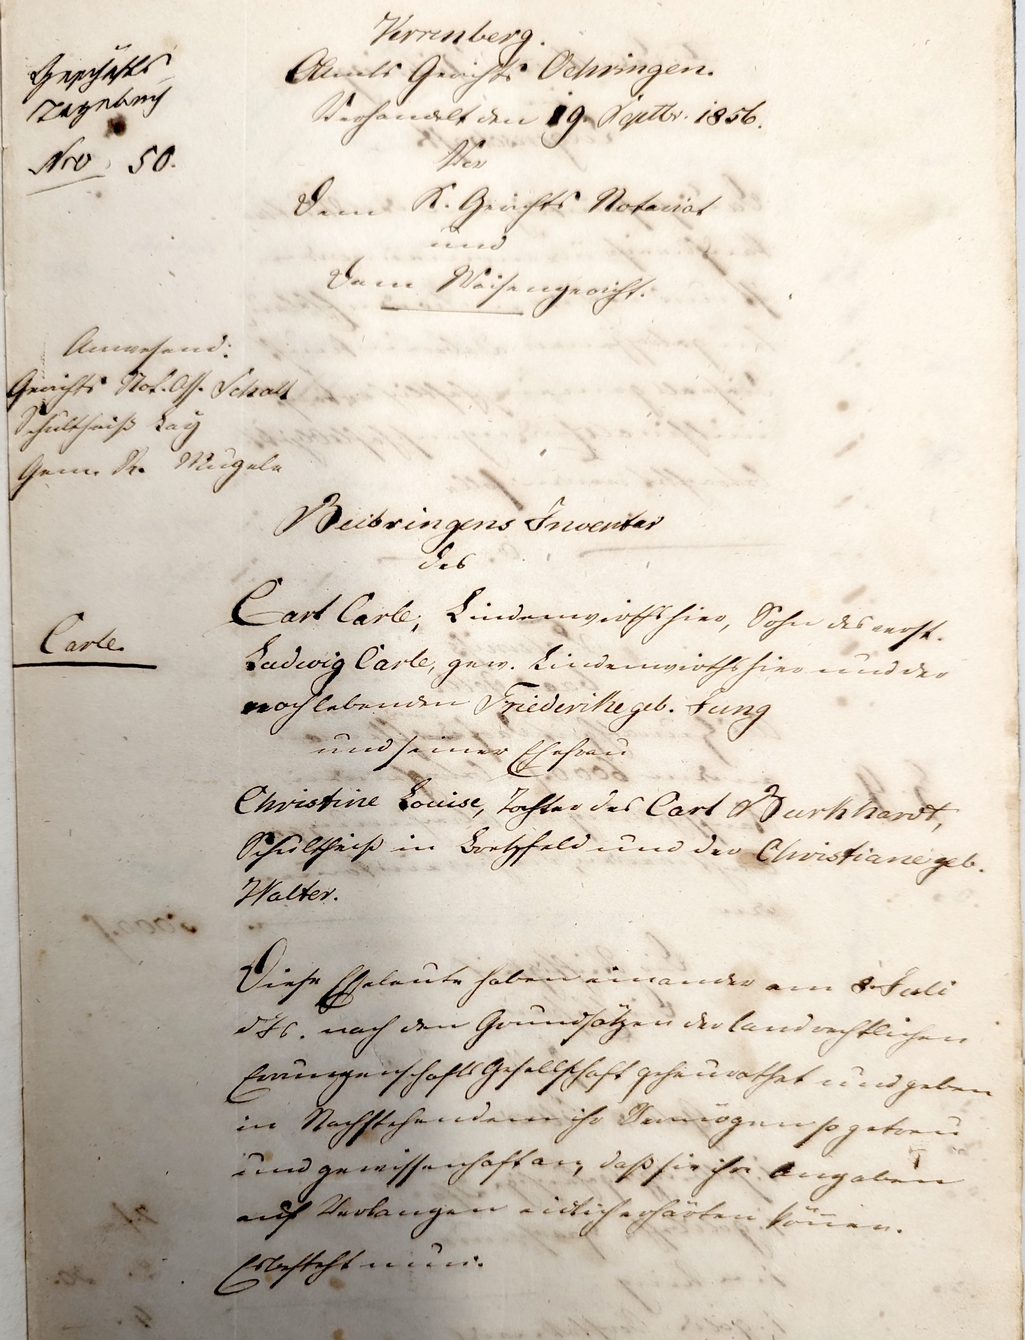 Verrenberg.
Geschäfts
Tagebuch
Nro 50.
Oberamts Gerichts Oehringen.
Verhandelt den 19 Septbr. 1856.
Vor
dem K. Gerichts Notariat
und
dem Waisengericht.
Anwesend:
Gerichts Not. Ass. Schatt
Schultheiß Lay
Gem. R.
Beibringens Inventar
des
Carle.
Carl Carle, Lindenwirths hier, Sohn des verst.
Ludwig Carle, gew. Lindenwirths hier und der
noch lebenden Friederike geb. Jung
und seiner Ehefrau
Christine Louise, Tochter des Carl Burkhardt,
Schultheiß in Bretzfeld und der Christiane geb.
Walter.
Diese Eheleute haben einander am 8. Juli
d. Js. nach den Grundsätzen der landrechtlichen
Errungenschafts Gesellschaft geheurathet und geben
in Nachstehendem ihr Vermögen so getreu
und gewissenhaft an, daß sie ihre Angaben
auf Verlangen eidlich erhärten können.
Es besteht nun: